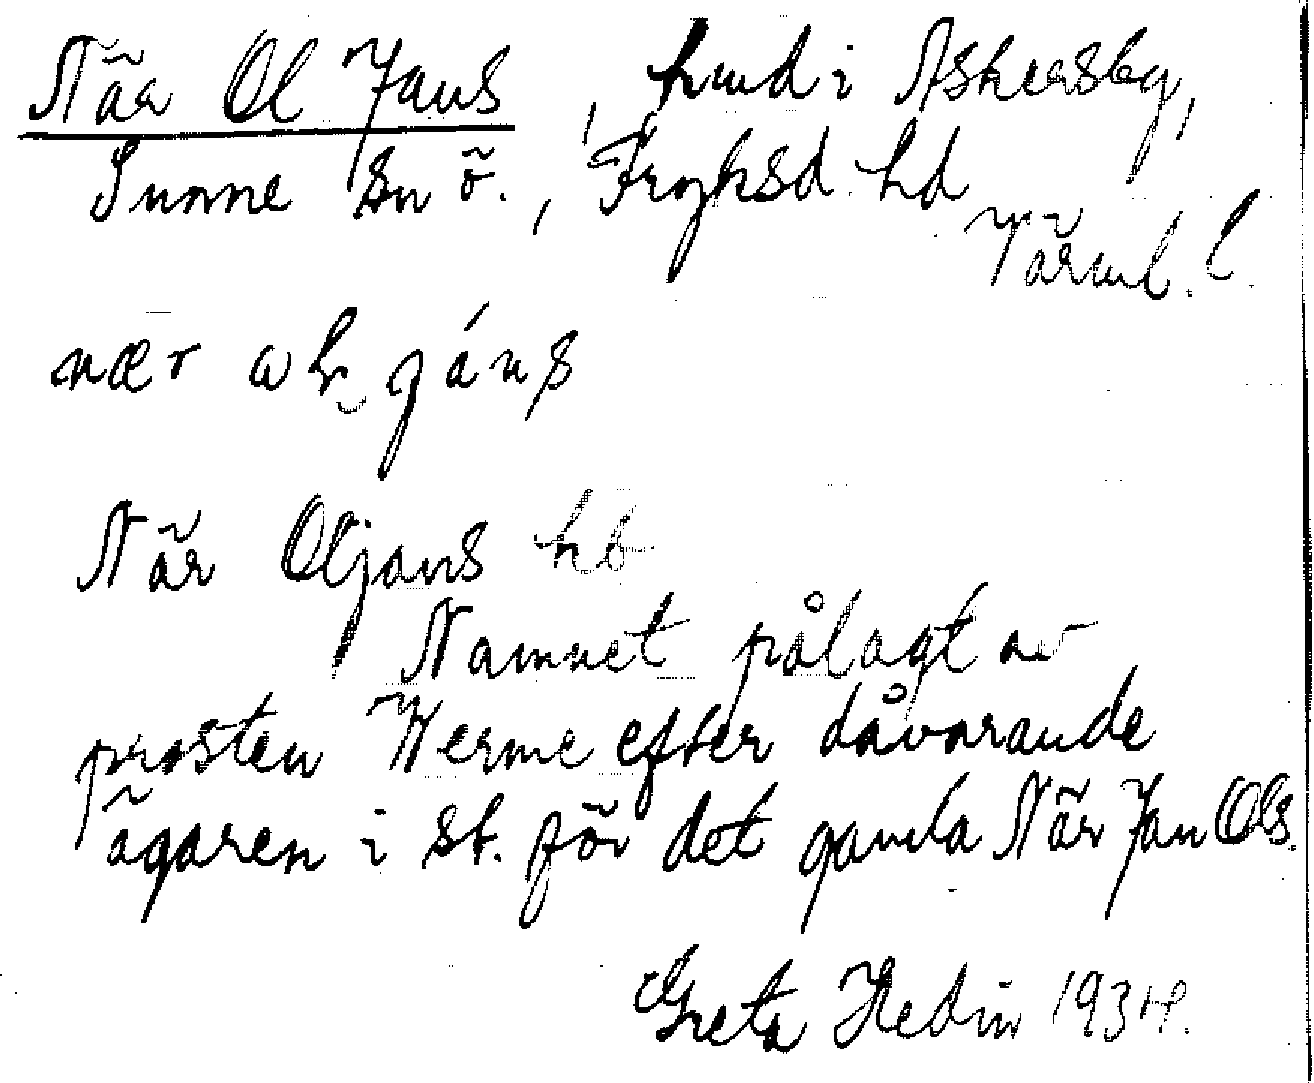 När Ol Jans, hmd i Askersby,
Sunne sn ö., Fryksd. hd
Värml. l.
När Oljans hb
Namnet pålagt av
prosten Werme efter dåvarande
ägaren i st. för det gamla När Jan Ols.
Greta Hedin 1934.